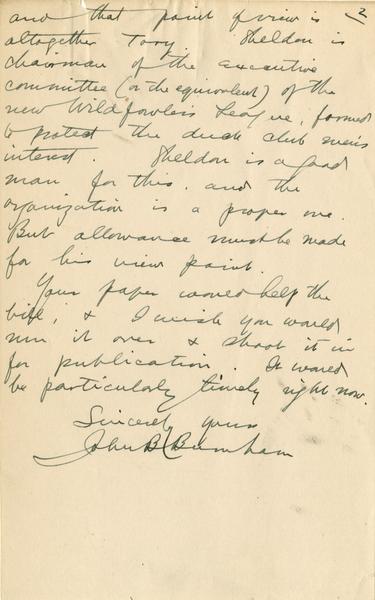 2
and that point of view is
altogether Tory. Sheldon is
chairman of the executive
committee (or the equivalent) of the
new Wildfowlers League, formed
to protect the duck club men's
interest. Sheldon is a good
man for this, and the
organization is a proper one.
But allowance must be made
for his view point.
Your paper would help the
bill, & I wish you would
run it over & shoot it in
for publication. It would
be particularly timely right now.
Sincerely yours
John B Burnham